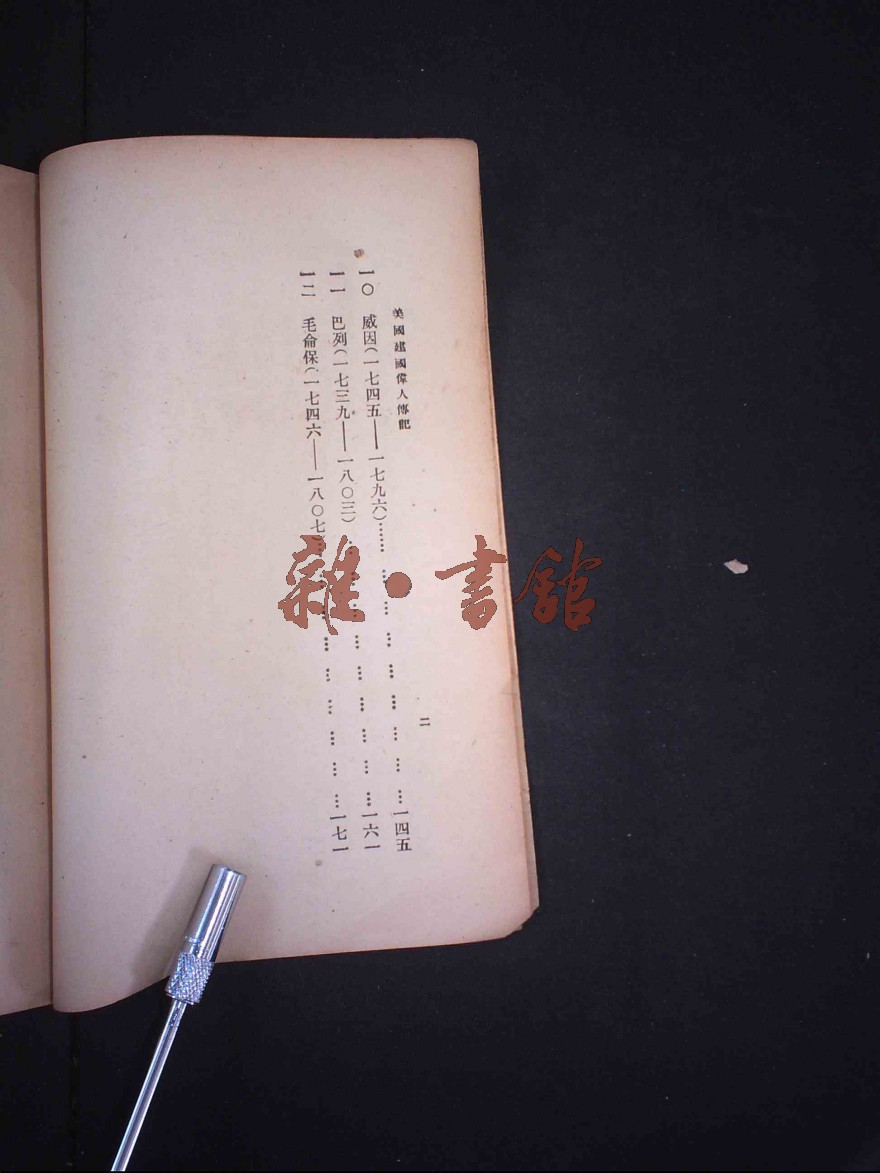 美國建國偉人傳記
二
一〇 威因(一七四五——一七九六)………………………一四五
一一 巴列(一七三九——一八〇三)………………………一六一
一二 毛侖保(一七四六——一八〇七)………………………一七一
雜·書館